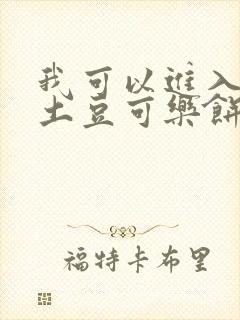 我可以進入
土豆可樂餅
福特卡布里